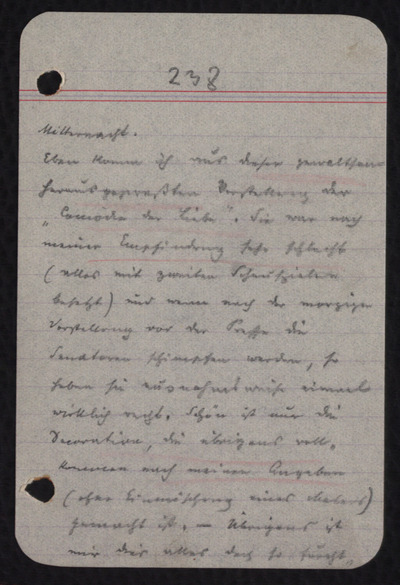 238
Mitternacht.
Eben komm ich aus dieser gewaltsam
herausgepreßten Vorstellung der
„Comödie der Liebe“. Sie war nach
meiner Empfindung sehr schlecht
(alles mit zweiten Schauspielern
besetzt) und wenn nach der morgigen
Vorstellung vor der Presse die
Senatoren schimpfen werden, so
haben sie ausnahmsweise einmal
wirklich recht. Schön ist nur die
Decoration, die übrigens voll-
kommen nach meinen Angaben
(ohne Einmischung eines Malers)
gemacht ist. – Übrigens ist
mir dies alles doch so furcht-